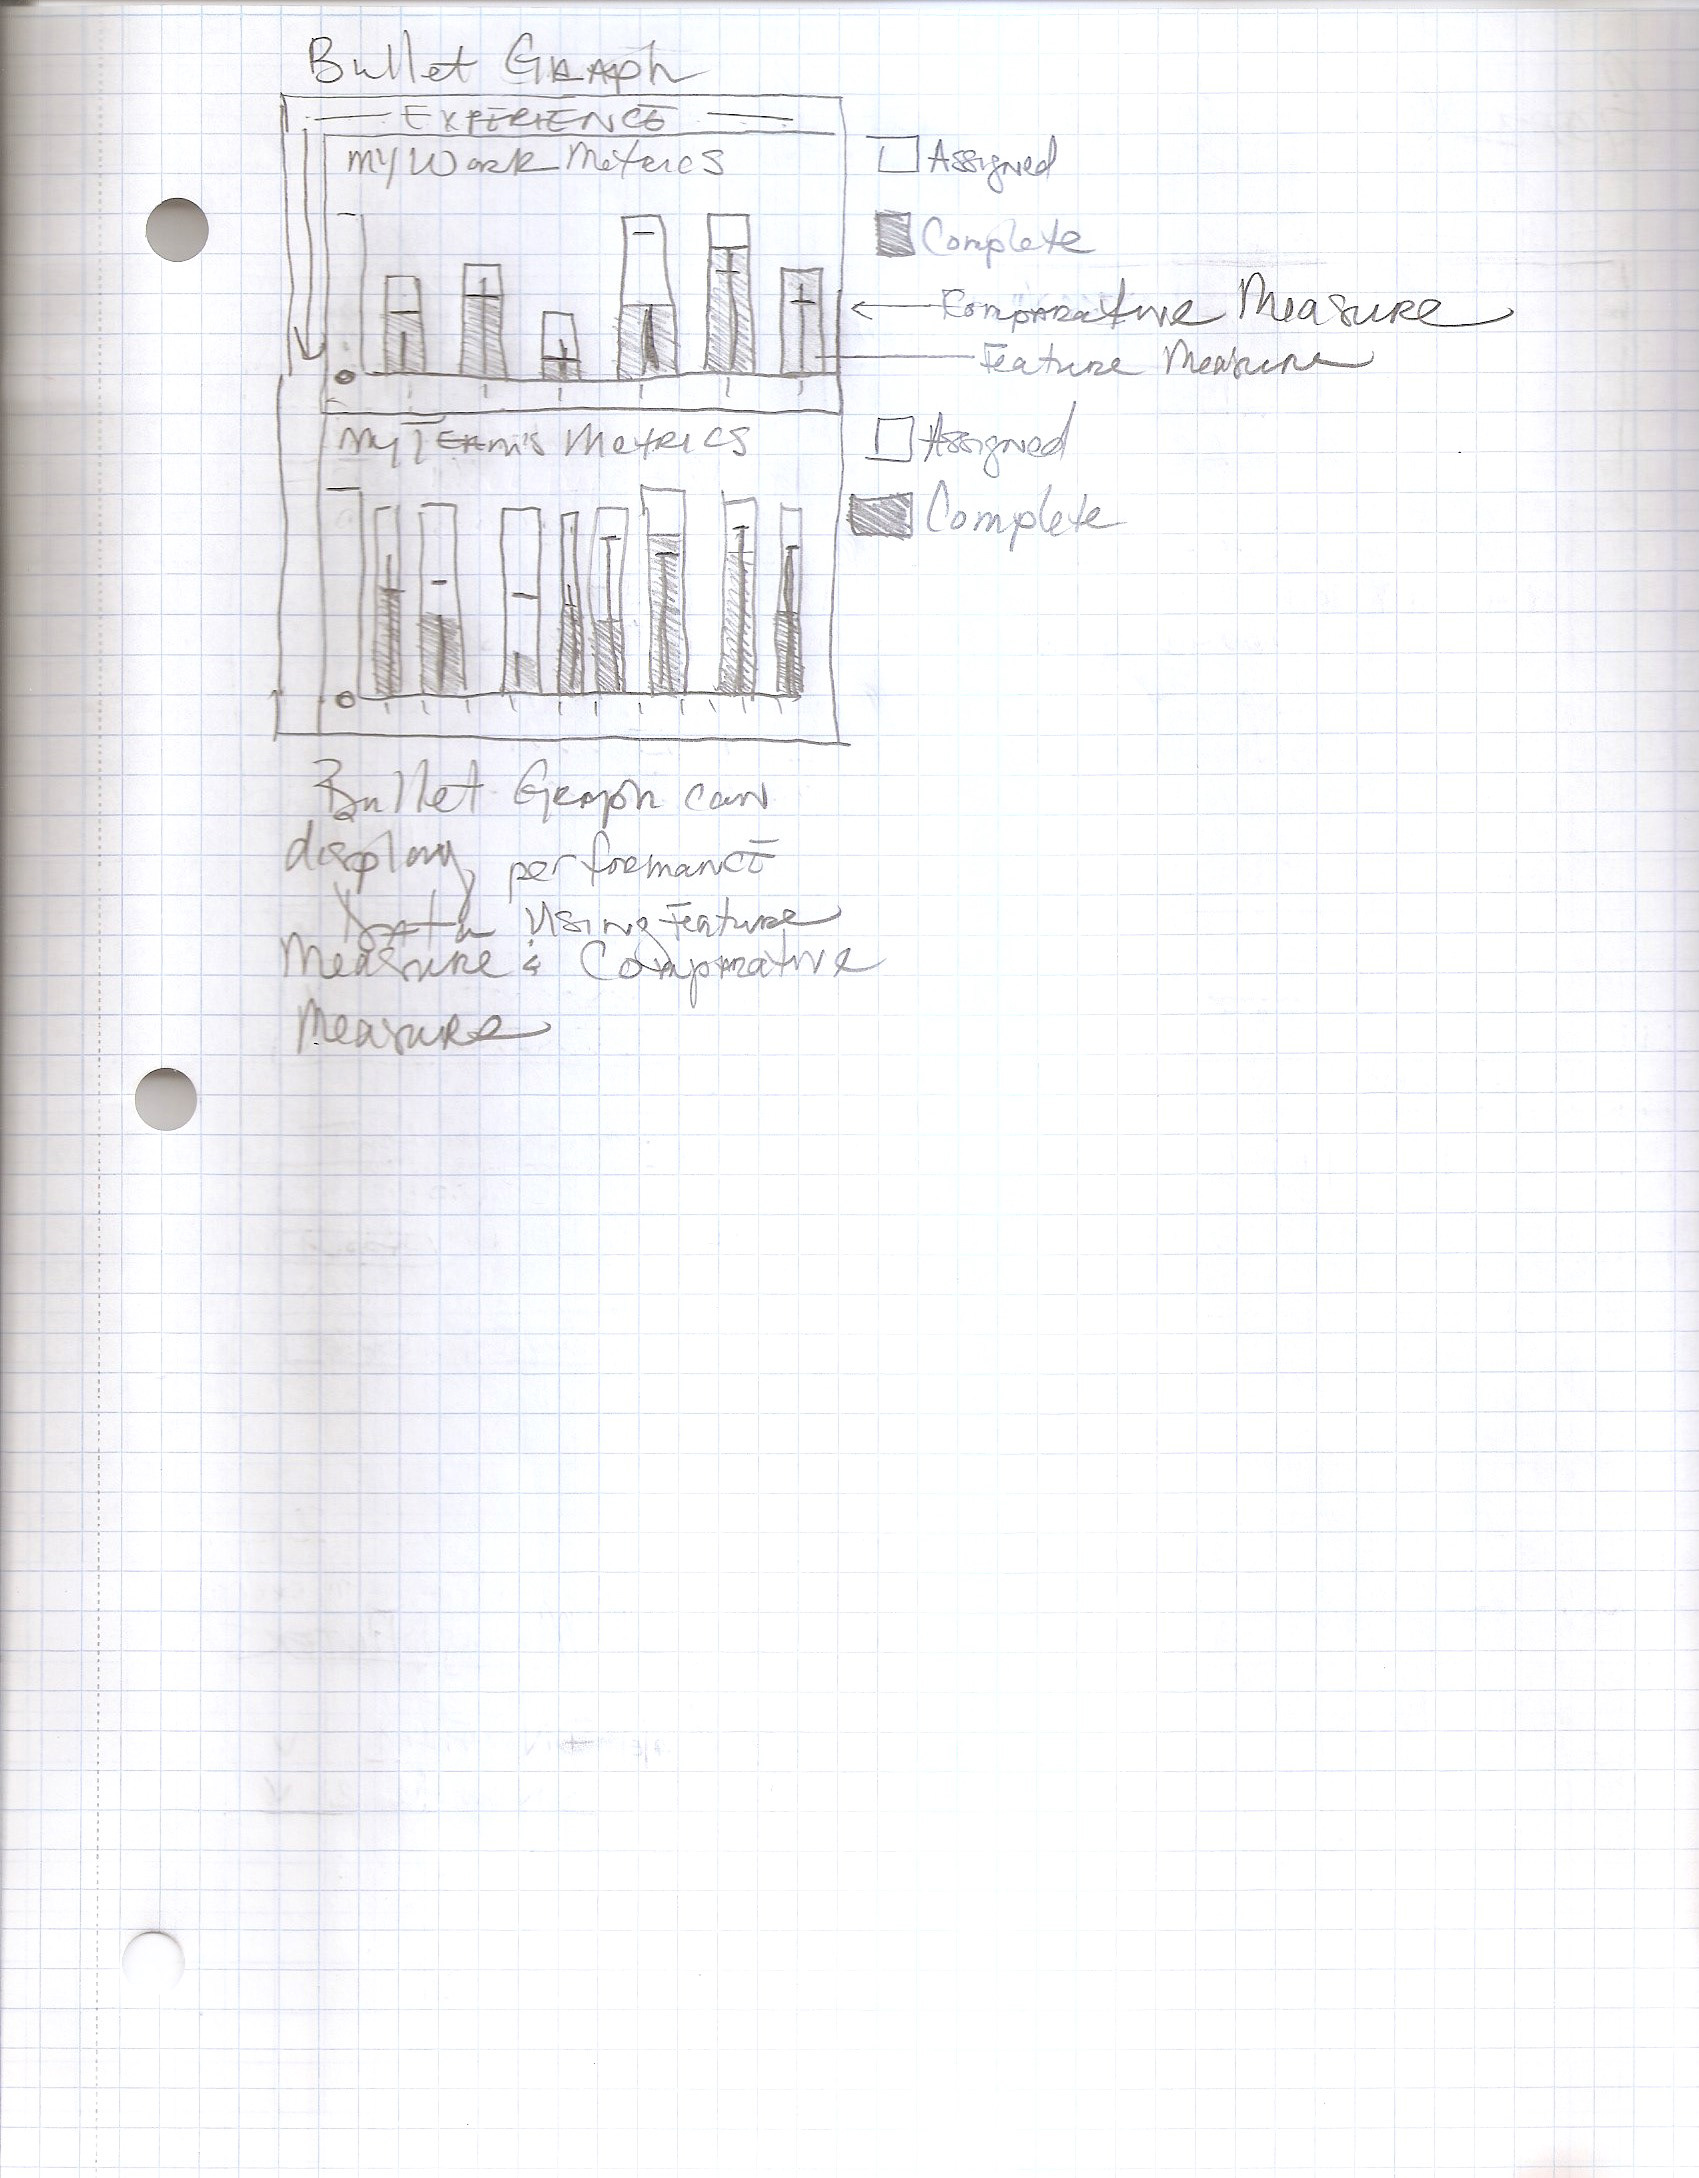 Bullet Graph
EXPERIENCE
My Work Metrics
Assigned
Complete
Comparative Measure
Feature Measure
0
My Team's Metrics
Assigned
Complete
0
Bullet Graph can
display performance
Data Using Feature
Measure & Comparative
Measure